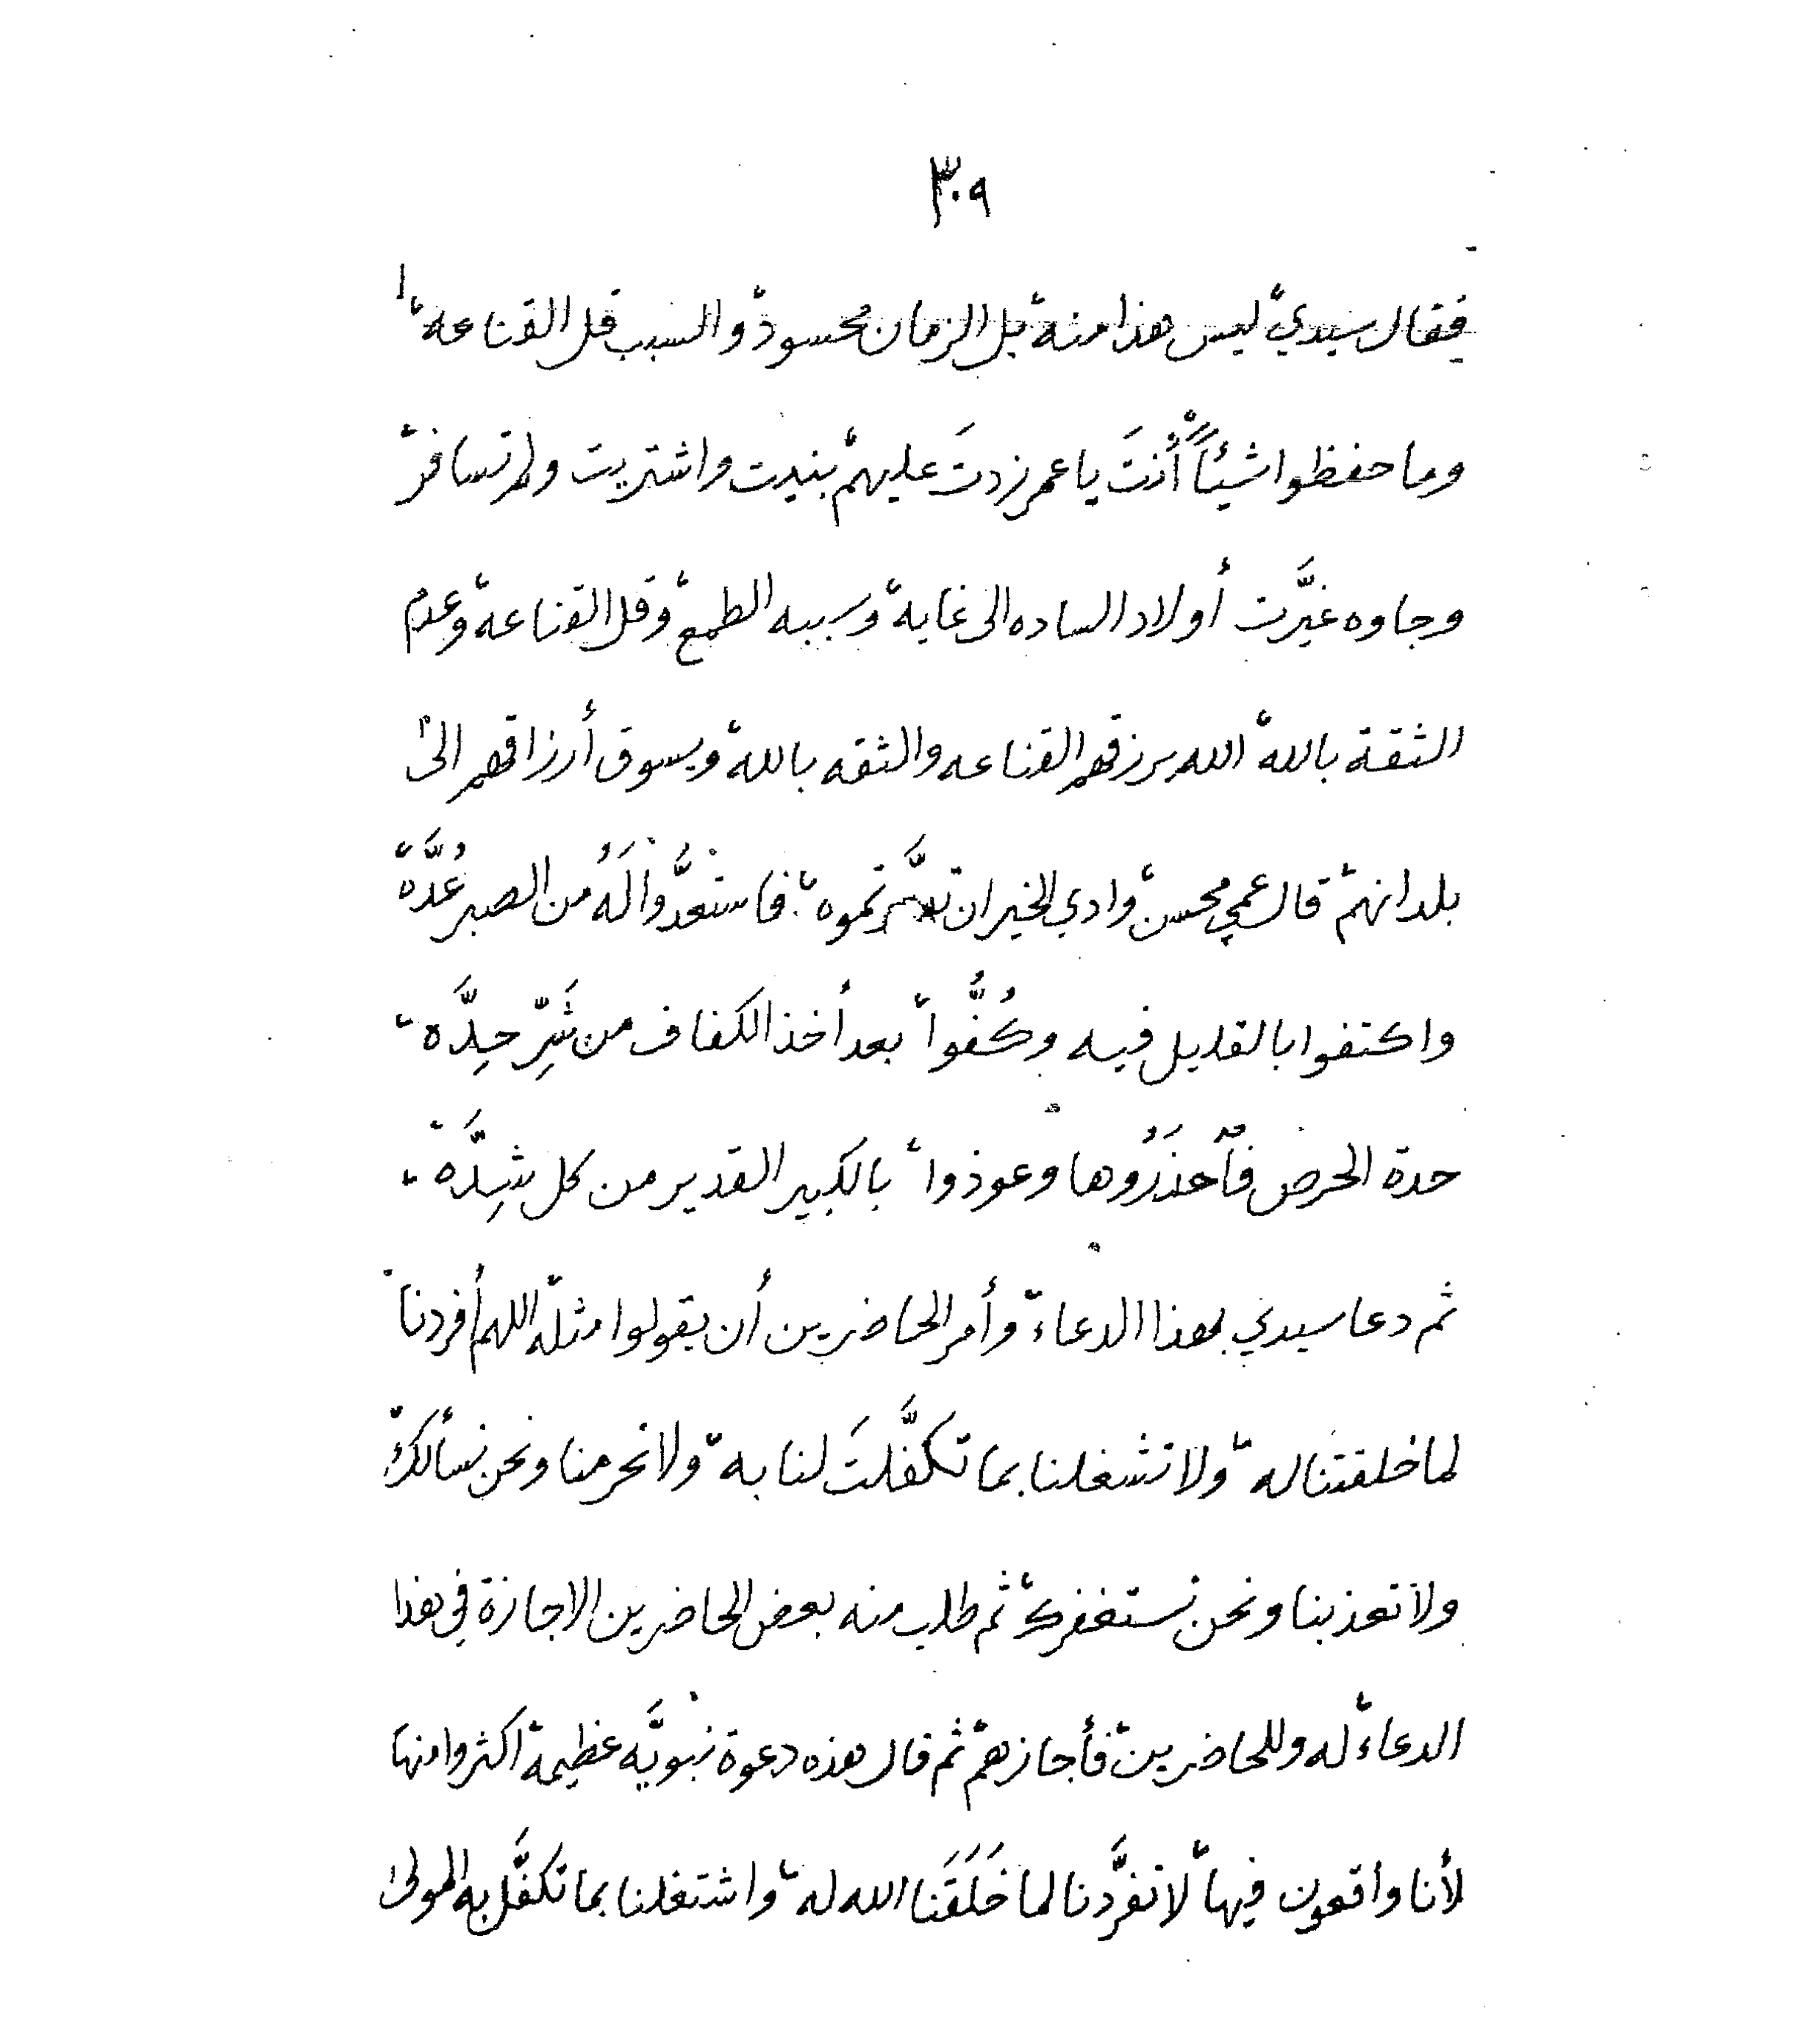 ٣٠٩
فقال سيدي، ليس هذا منه، بل الزمان محسود، والسبب قل القناعه، ا
وما حفظوا شيئاً، أنتَ يا عمر زدتَ عليهم، بنيت واشتريت ولم تسافر،
وجاوه غيَّرت أولاد الساده الى غايه، وسببه الطمع، وقل القناعه، وعدم
الثقة بالله، الله يرزقهم القناعه والثقه بالله، ويسوق أرزاقهم الى
بلدانهم، قال عمي محسن، وادي الخيران تسَّرتموه، فاستعدُّوا لَهُ من الصبر عُدَّه،
واكتفوا بالقليل فيه وكُفُّوا، بعد أخذ الكفاف من شَرِّ حِدَّه،
حدة الحرص فاحذَرُوها وعوذوا، بالكبير القدير من كل شِدَّه،
ثم دعا سيدي بهذا الدعاء، وأمر الحاضرين أن يقولوا مثله، اللهم أفردنا
لما خلقتنا له، ولا تشغلنا بما تكفَّلتَ لنا به، ولا تحرمنا ونحن نسألك،
ولا تعذبنا ونحن نستغفرك، ثم طلب منه بعض الحاضرين الاجازة في هذا
الدعاء، له وللحاضرين، فأجازهم، ثم قال هذه دعوة نبويَّه عظيمة، اكثروا منها
لأنا واقعون فيها، لا تفرَّدنا لما خَلَقَنا الله له، واشتغلنا بما تكفَّل به المولى